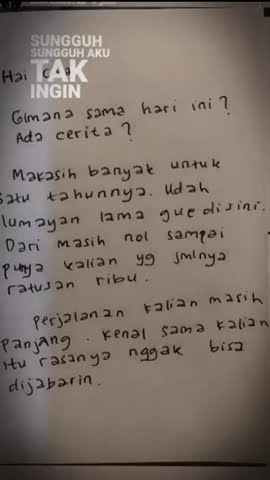 SUNGGUH
SUNGGUH AKU
TAK
INGIN
Hai
Gimana sama hari ini?
Ada cerita?
Makasih banyak untuk
satu tahunnya. Udah
lumayan lama gue disini.
Dari masih nol sampai
punya kalian yg jmlnya
ratusan ribu.
perjalanan kalian masih
panjang. kenal sama kalian
itu rasanya nggak bisa
dijabarin.